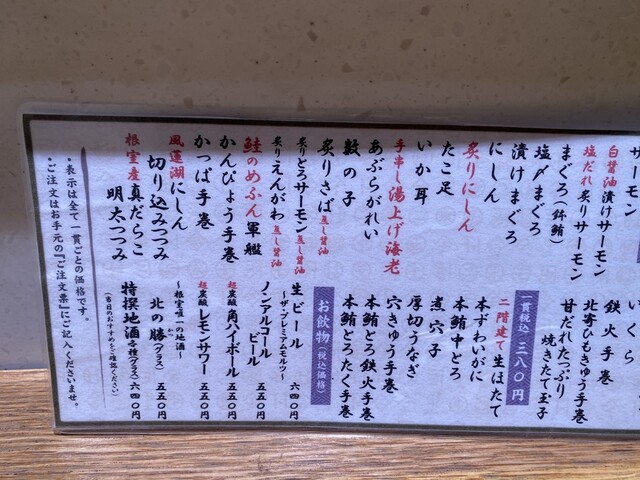 サーモン
白醤油漬けサーモン
塩だれ炙りサーモン
まぐろ(鉢鮪)
塩〆まぐろ
漬けまぐろ
にしん
炙りにしん
たこ足
いか耳
手串し湯上げ海老
あぶらがれい
数の子
炙りさば蒸し醤油
炙りとろサーモン蒸し醤油
炙りえんがわ蒸し醤油
鮭のめふん軍艦
かんぴょう手巻
かっぱ手巻
風蓮湖にしん
切り込みつつみ
根室産真だらこ
明太つつみ
いくら
鉄火手巻
北寄ひもきゅう手巻
甘だれたっぷり
焼きたて玉子
一貫税込三八〇円
二階建て生ほたて
本ずわいがに
本鮪中とろ
煮穴子
厚切うなぎ
穴きゅう手巻
本鮪とろ鉄火手巻
本鮪とろたく手巻
お飲物(税込価格)
生ビール 六四〇円
〜ザ・プレミアムモルツ〜
ノンアルコール
ビール 五五〇円
超炭酸角ハイボール 五五〇円
超炭酸レモンサワー 五五〇円
〜根室唯一の地酒〜
北の勝(グラス) 五五〇円
特撰地酒各種(グラス) 六四〇円
(当日のおすすめをご確認ください)
・表示は全て一貫ごとの価格です。
・ご注文はお手元の『ご注文票』にご記入くださいませ。